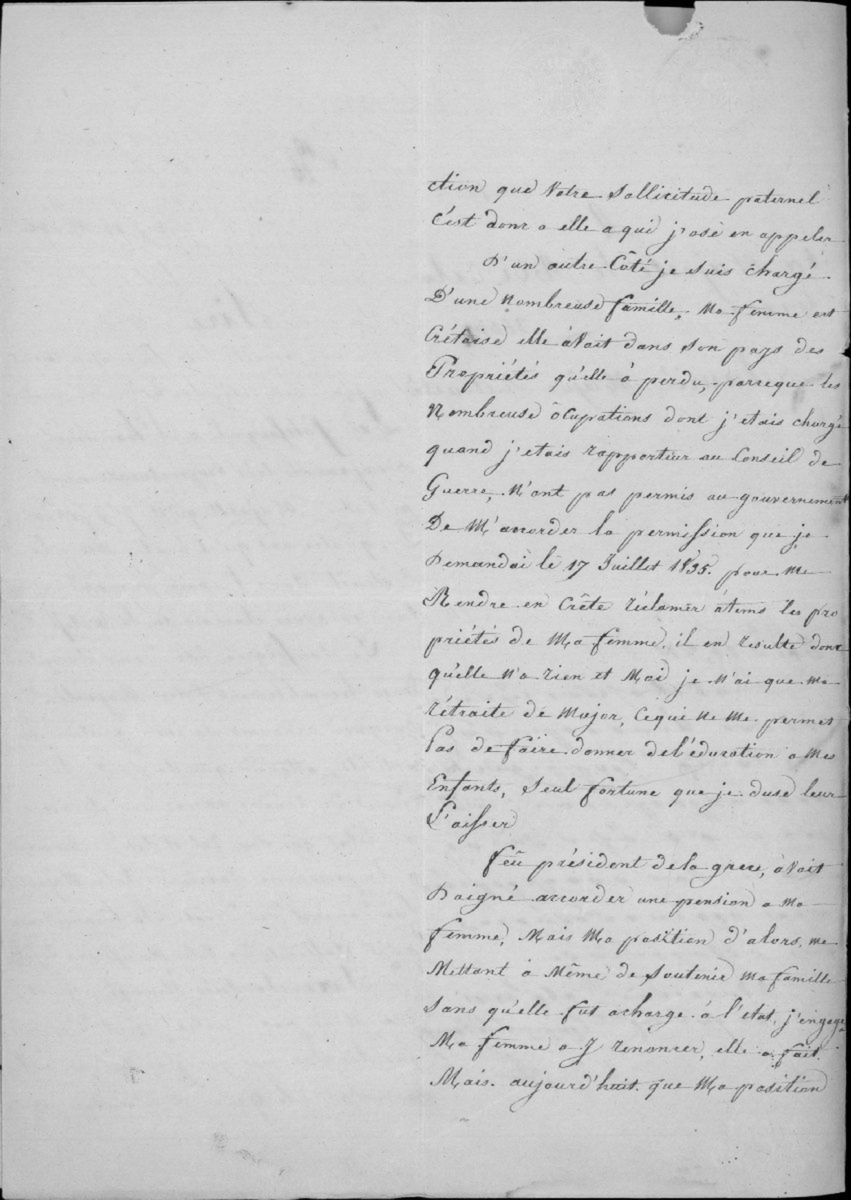 ction que Votre Sollicitude paternel
c'est donc a elle a qui j'osé en appeler
D'un autre Côté je suis chargé
D'une Nombreuse famille, Ma femme est
Crétoise elle àvait dans son pays des
Propriétés qu'elle à perdu, parceque les
Nombreuse ôcupations dont j'etais chargé
quand j'etais rapporteur au Conseil de
Guerre, N'ont pas permis au gouvernement
De M'accorder la permission que je
Demandai le 17 Juillet 1835. pour me
Rendre en Crête réclamer àtems les pro
priétés de Ma femme. il en resulte donc
qu'elle N'a rien et Moi je N'ai que ma
rétraite de Major, Cequi Ne Me permet
Pas de faire donner de l'éducation a Mes
Enfants, Seul fortune que je dusé leur
Laisser
feû président dela grece, àvait
Daigné accorder une pension a Ma
femme, Mais Ma position d'alors, me
Mettant à Même de Soutenir ma famille
Sans qu'elle fut acharge à l'etat, j'engage
Ma femme a y renoncer, elle a fait
Mais aujourd'huit que Ma position